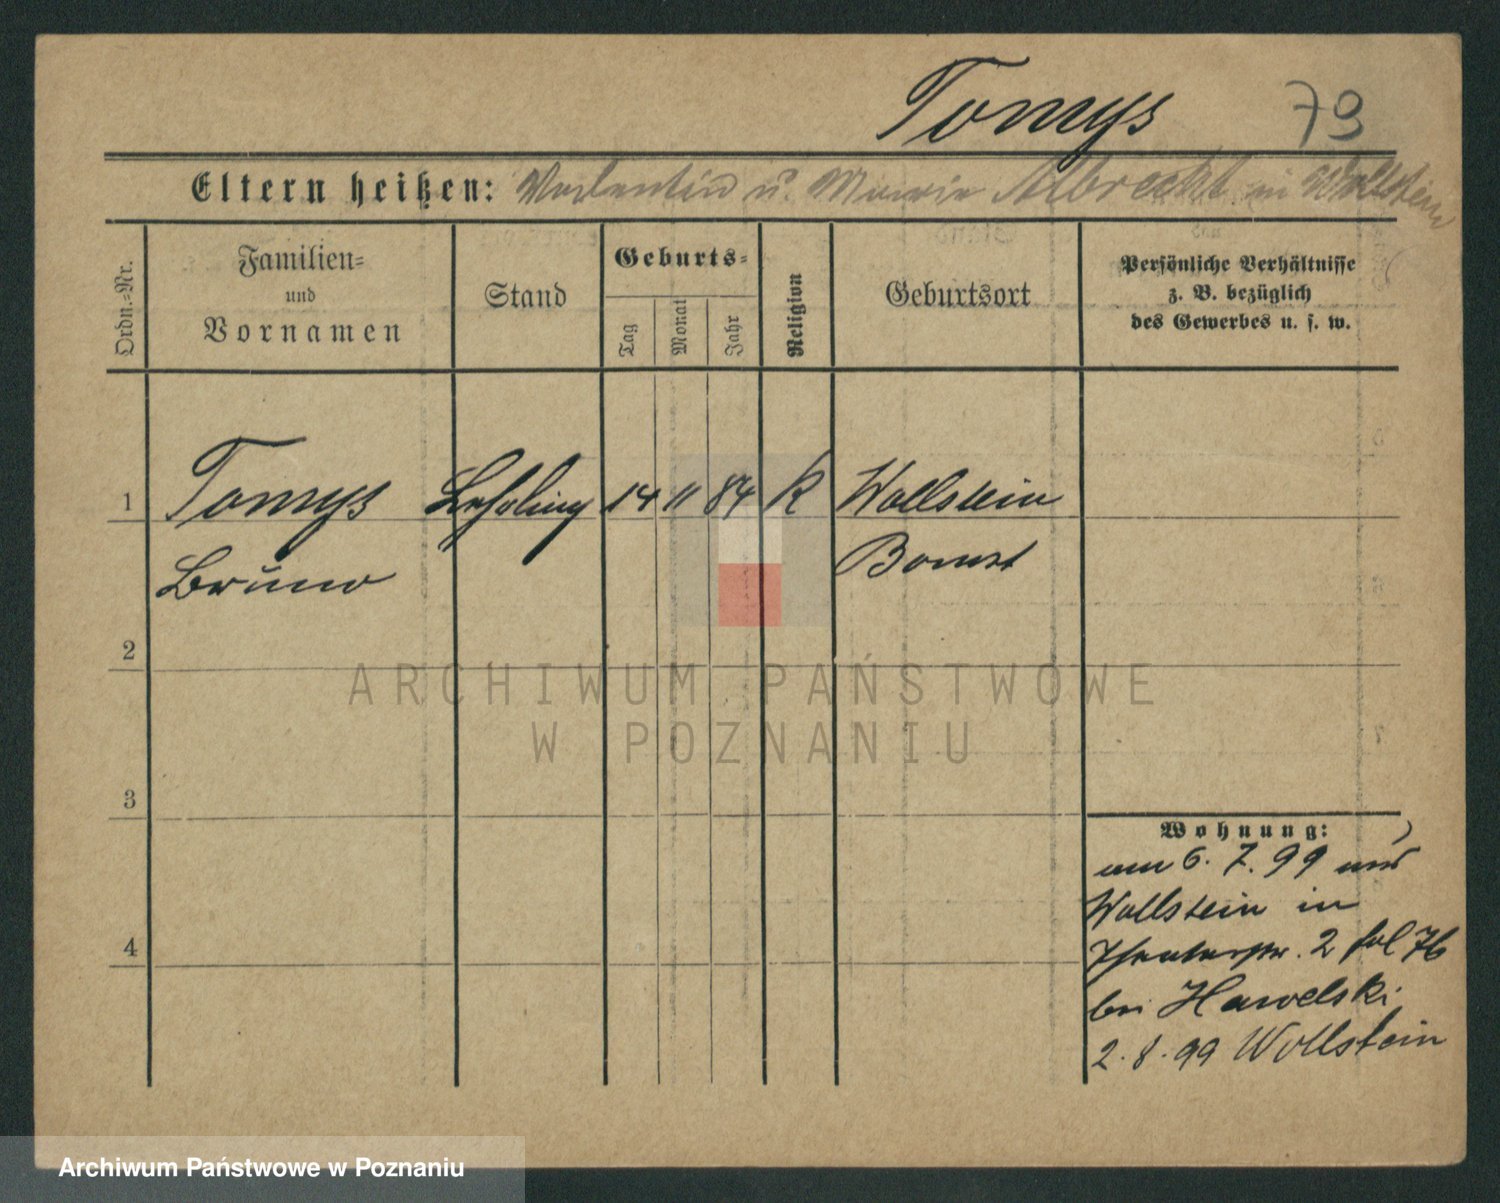 Tomys 79
Eltern heißen: Valentin u. Marie Albrecht in Wollstein
Ordn.=Nr.
Familien=
und
Vornamen
Stand
Geburts=
Tag
Monat
Jahr
Religion
Geburtsort
Persönliche Verhältnisse
z. B. bezüglich
des Gewerbes u. s. w.
1 Tomys Lehrling 14 11 84 K Wollstein
Bruno Bomst
2
3
4
Wohnung:
am 6. 7. 99 aus
Wollstein in
Theaterstr. 2 fol 76
bei Hawelski
2. 8. 99 Wollstein
ARCHIWUM PAŃSTWOWE
W POZNANIU
Archiwum Państwowe w Poznaniu